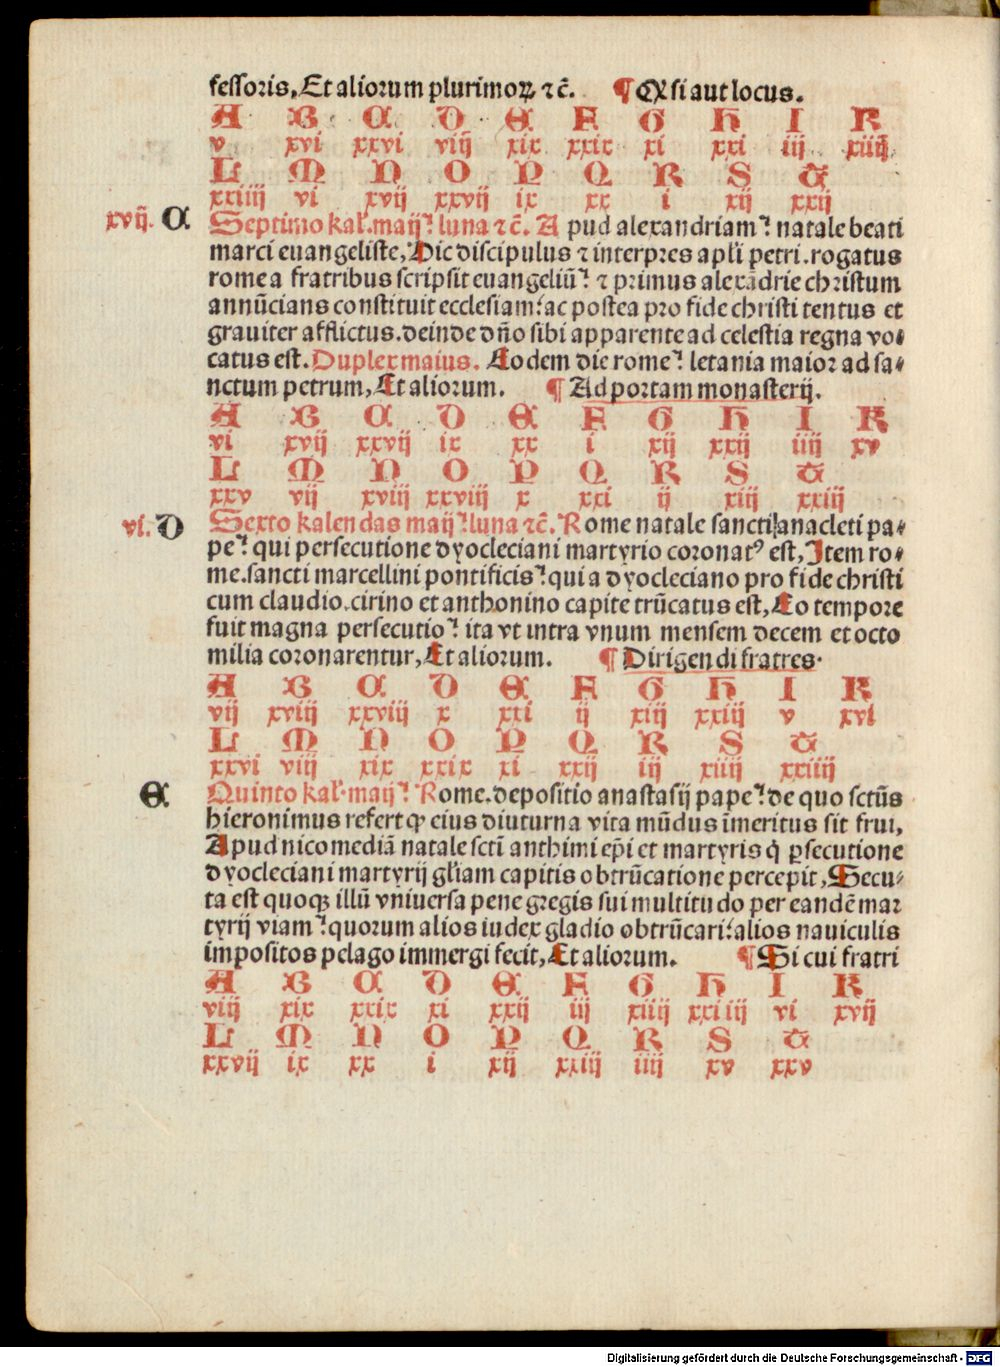 fessoris, Et aliorum plurimoꝝ ⁊c̄. ¶ Q̇ si aut locus.
A B C D E F G H I K
v xvi xxvi viij xix xxix xi xxi iij xiiij
L M N O P Q R S T
xxiiij vi xvij xxvij ix xx i xij xxij
xvij. C Septimo kal'. maij: luna ⁊c̄. A pud alexandriam: natale beati
marci euangeliste, Hic discipulus ⁊ interpres apl'i petri. rogatus
rome a fratribus scripsit euangeliū: ⁊ primus alexādrie christum
annūcians constituit ecclesiam: ac postea pro fide christi tentus et
grauiter afflictus. deinde dn̄o sibi apparente ad celestia regna vo⸗
catus est. Duplex maius. Eodem die rome: letania maior ad sa⸗
nctum petrum, Et aliorum. ¶ Ad portam monasterij.
A B C D E F G H I K
vi xvij xxvij ix xx i xij xxij iiij xv
L M N O P Q R S T
xxv vij xviij xxviij x xxi ij xiij xxiij
vi. D Sexto kalendas maij: luna ⁊c̄. Rome natale sancti anacleti pa⸗
pe: qui persecutione dyocleciani martyrio coronatꝰ est, Item ro⸗
me. sancti marcellini pontificis: qui a dyocleciano pro fide christi
cum claudio. cirino et anthonino capite trūcatus est, Eo tempore
fuit magna persecutio: ita vt intra vnum mensem decem et octo
milia coronarentur, Et aliorum. ¶ Dirigendi fratres.
A B C D E F G H I K
vij xviij xxviij x xxi ij xiij xxiij v xvi
L M N O P Q R S T
xxvi viij xix xxix xi xxij iij xiiij xxiiij
E Quinto kal'. maij: Rome. depositio anastasij pape: de quo sctūs
hieronimus refert ꝙ eius diuturna vita mūdus īmeritus sit frui,
Apud nicomediā natale sctī anthimi ep̄i et martyris q̇ ꝑsecutione
dyocleciani martyrij gl'iam capitis obtrūcatione percepit, Secu⸗
ta est quoqꝫ illū vniuersa pene gregis sui multitudo per eandē mar
tyrij viam: quorum alios iudex gladio obtrūcari: alios nauiculis
impositos pelago immergi fecit, Et aliorum. ¶ Si cui fratri
A B C D E F G H I K
viij xix xxix xi xxij iij xiiij xxiiij vi xvij
L M N O P Q R S T
xxvij ix xx i xij xxiij iiij xv xxv
Digitalisierung gefördert durch die Deutsche Forschungsgemeinschaft - DFG